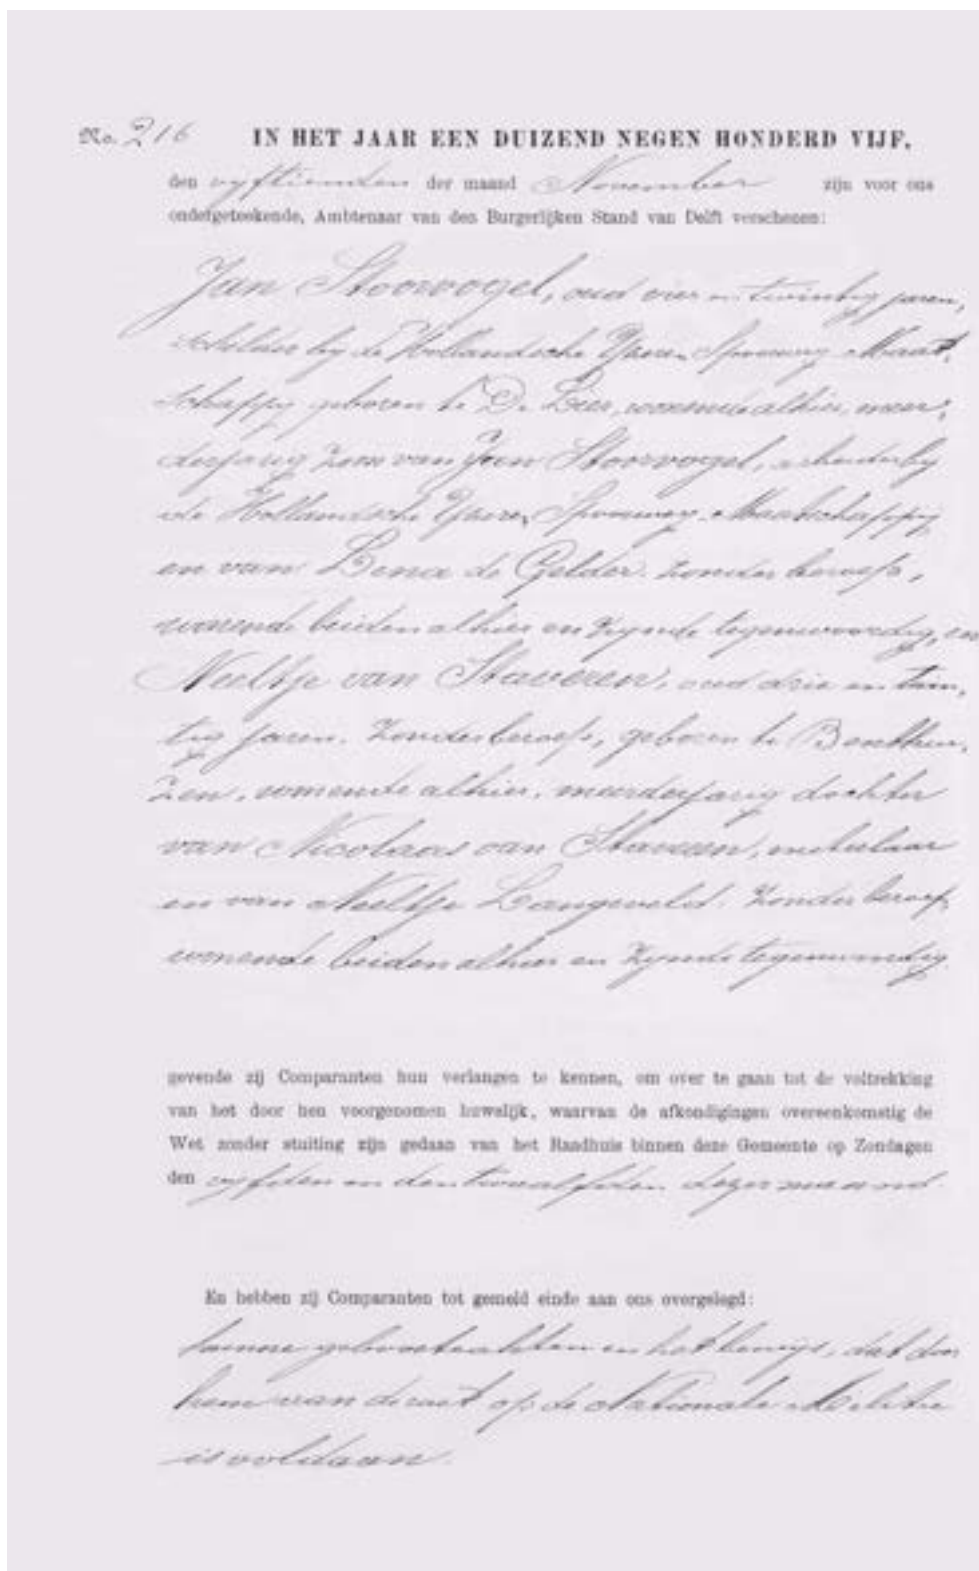 No. 216 IN HET JAAR EEN DUIZEND NEGEN HONDERD VIJF,
den vyftienden der maand November zijn voor ons
ondergeteekende, Ambtenaar van den Burgerlijken Stand van Delft verschenen:
Jan Stoorvogel, oud vier en twintig jaren,
schilder by de Hollandsche Yzeren Spoorweg Maat-
schappy geboren te De Lier, wonende alhier, meer-
derjarig zoon van Jan Stoorvogel, arbeider by
de Hollandsche Yzeren Spoorweg Maatschappy
en van Lena de Gelder, zonder beroep,
wonende beiden alhier en zynde tegenwoordig, en
Neeltje van Staveren, oud drie en twin-
tig jaren, zonder beroep, geboren te Benthui-
zen, wonende alhier, meerderjarig dochter
van Nicolaas van Staveren, metselaar
en van Neeltje Langeveld, zonder beroep,
wonende beiden alhier en zynde tegenwoordig
gevende zij Comparanten hun verlangen te kennen, om over te gaan tot de voltrekking
van het door hen voorgenomen huwelijk, waarvan de afkondigingen overeenkomstig de
Wet zonder stuiting zijn gedaan van het Raadhuis binnen deze Gemeente op Zondagen
den vyfden en den twaalfden dezer maand.
En hebben zij Comparanten tot gemeld einde aan ons overgelegd:
hunne geboorteakten en het bewys, dat door
hem aan de wet op de Nationale Militie
is voldaan.